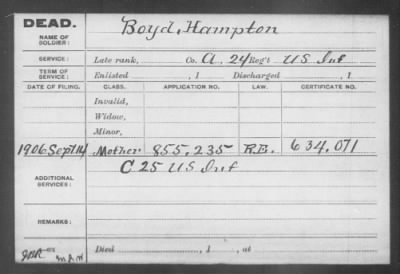 DEAD.
NAME OF SOLDIER: Boyd, Hampton
SERVICE: Late rank, Co. A. 24 Reg't U.S. Inf
TERM OF SERVICE: Enlisted , 1 Discharged , 1
DATE OF FILING. CLASS. APPLICATION NO. LAW. CERTIFICATE NO.
Invalid,
Widow,
Minor,
1906 Sept 14 Mother 855.235 634.071
ADDITIONAL SERVICES: C 25 U.S. Inf
REMARKS:
Died , 1 , at